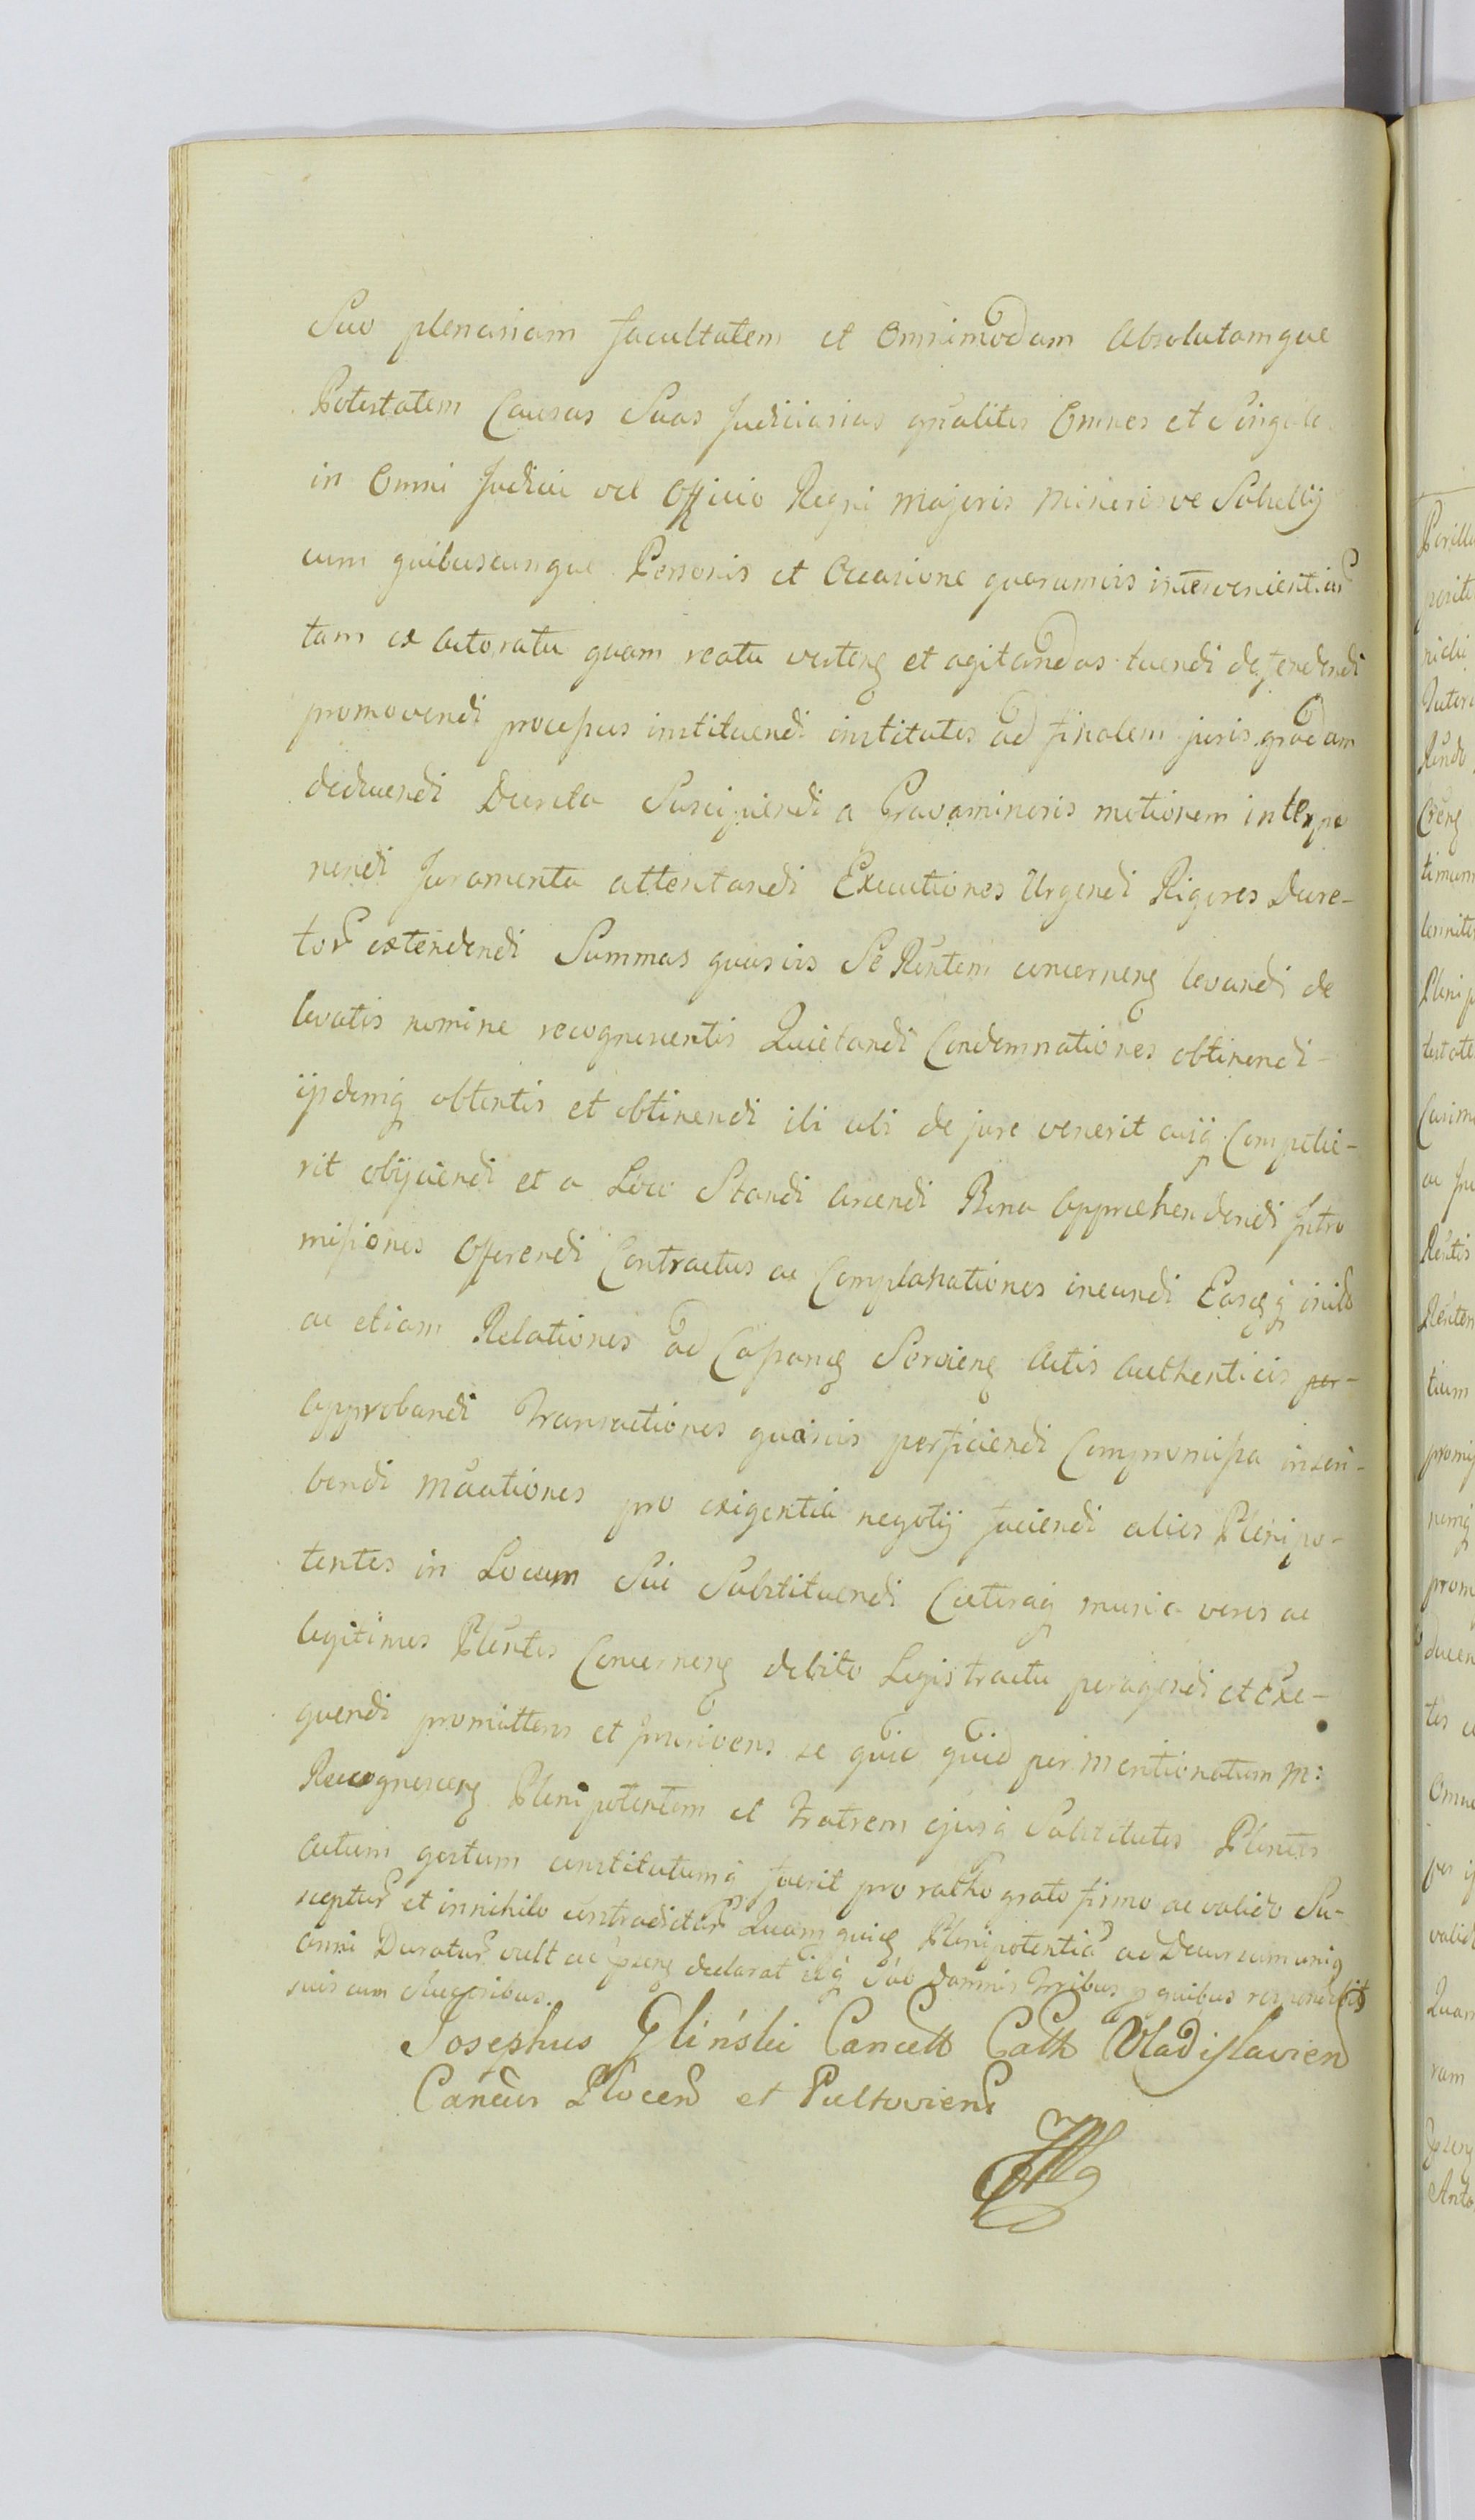 Suo plenariam facultatem et Omnimodam Absolutamque
Potestatem Causas Suas Judiciarias gnaliter Omnes et Singulas
in Omni Judicio vel Officio Regni Majoris Minorisve Subsellij
cum quibuscunque Personis et Occasione quarumvis intervenientiar
tam ex actoratu quam reatu verteng et agitandas tuendi defendendi
promovendi processus instituendi institutos ad finalem juris gradum
deducendi Decreta Suscipiendi a Gravaminosis motionem interpo
nendi Juramenta attentandi Executiones Urgendi Rigores Decre-
tor extendendi Summas quasvis Se Rñtem concerneng levandi de
levatis nomine recognoscentis Quietandi Condemnationes obtinendi-
ijsdemq obtentis et obtinendi ibi ubi de jure venerit cuiq Competie-
rit obijciendi et a Loco Standi arcendi Bona Apprehendendi Intro
missiones Offerendi Contractus ac Complanationes ineundi Easq
ac etiam Relationes ad Servieng Actis Authenticis per-
approbandi Transactiones quasvis perficiendi Compromissa inscri-
bendi pro exigentia negotij faciendi alios Plenipo-
tentes in Locum Sui Substituendi Caeteraq munia veros ac
legitimos Pleñtes Concerneng debito Legis tractu peragendi et Exe-
quendi promittens et se quid quid per Mentionatum M:
Recognosceng Plenipotentem et Fratrem ejusq Substitutos Pleñtes
actum gestum constitutumq fuerit pro ratho grato firmo ac valido Su-
sceptur et in nihilo contradictur Quam quid Plenipotentia ad Decursum uniq
anni Duratur vult ac declarat idq Sub Damnis Tribus quibus
suis cum Successoribus.
Josephus Gliński Cancell Cath Vladislavien
Cancus Plocen et Pultovien